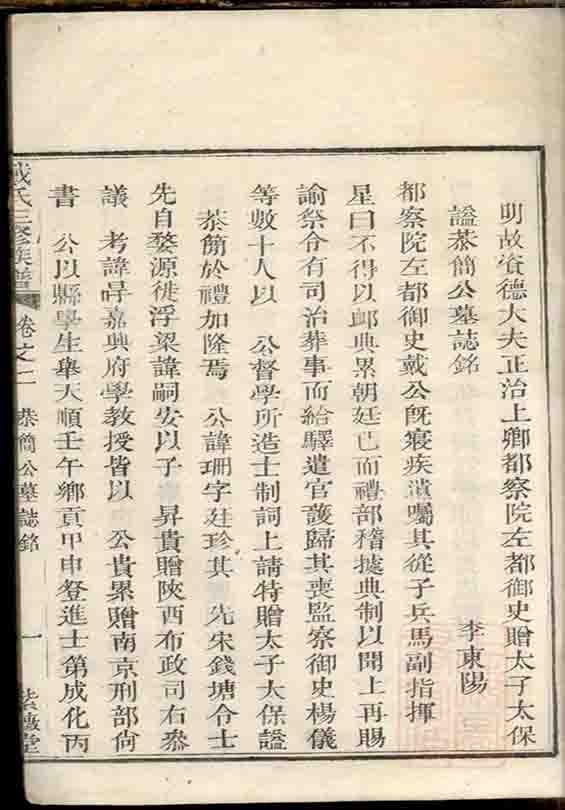 明故資德大夫正治上卿都察院左都御史贈太子太保
諡恭簡公墓誌銘 李東陽
都察院左都御史戴公旣寢疾遺囑其從子兵馬副指揮
星曰不得以卹典累朝廷已而禮部稽據典制以聞上再賜
諭祭令有司治葬事而給驛遣官護歸其喪監察御史楊儀
等數十人以 公督學所造士制詞上請特贈太子太保諡
恭簡於禮加隆焉 公諱珊字廷珍其 先宋錢塘令士
先自婺源徙浮梁諱嗣安以子 昇貴贈陝西布政司右叅
議 考諱㝵嘉興府學教授皆以 公貴累贈南京刑部尙
書 公以縣學生舉天順壬午鄉貢甲申登進士第成化丙
戴氏三修族譜 卷之二 恭簡公墓誌銘 一 紫薇堂